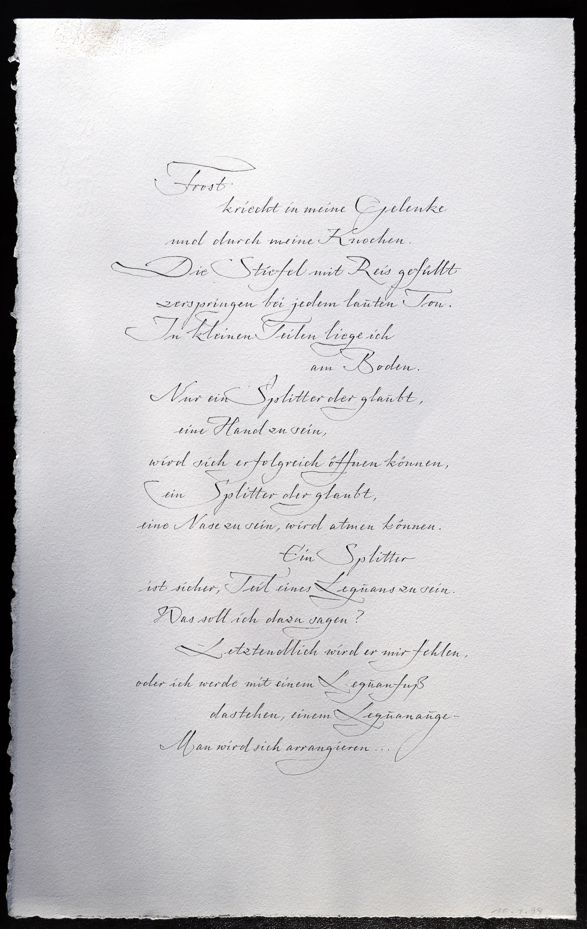 Frost
kriecht in meine Gelenke
und durch meine Knochen.
Die Stiefel mit Reis gefüllt
zerspringen bei jedem lauten Ton.
In kleinen Teilen liege ich
am Boden.
Nur ein Splitter der glaubt,
eine Hand zu sein,
wird sich erfolgreich öffnen können,
ein Splitter der glaubt,
eine Nase zu sein, wird atmen können.
Ein Splitter
ist sicher, Teil eines Leguans zu sein.
Was soll ich dazu sagen?
Letztendlich wird er mir fehlen,
oder ich werde mit einem Leguanfuß
dastehen, einem Leguanauge-
Man wird sich arrangieren...